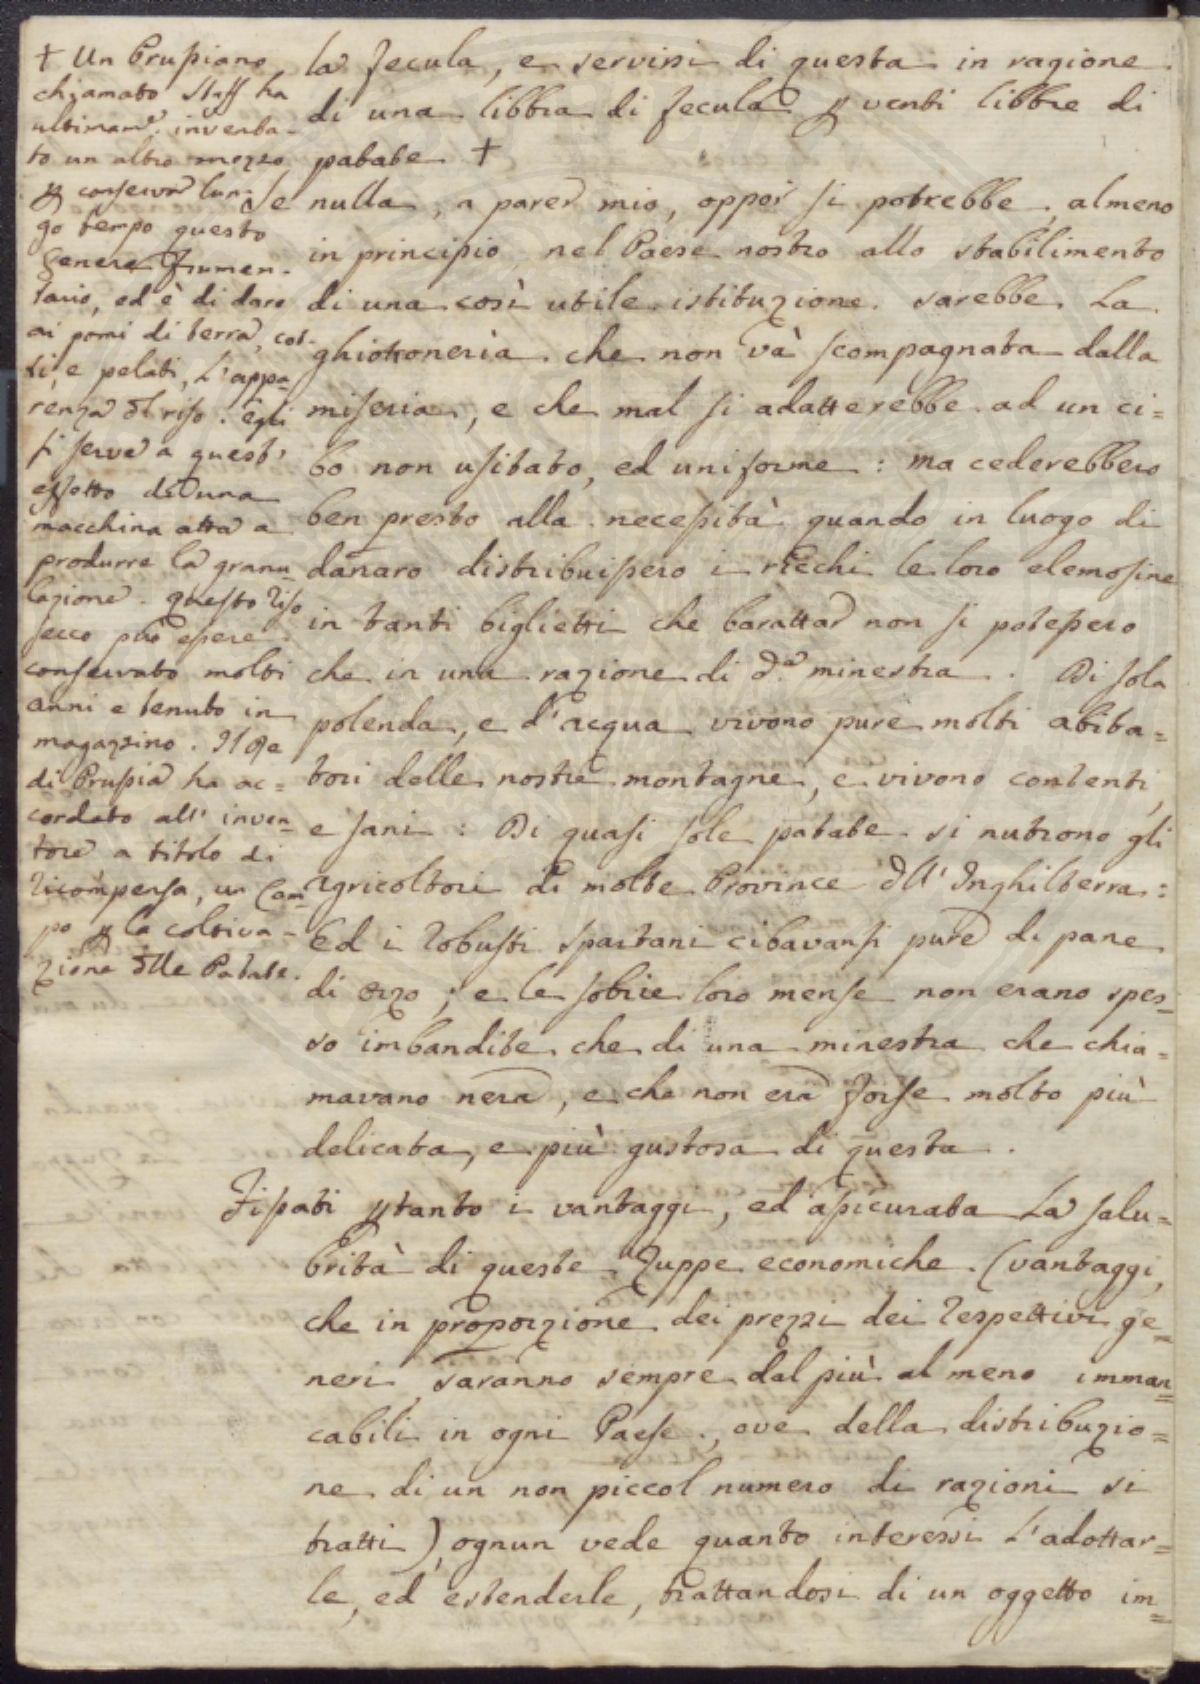 + Un Prussiano
chiamato Staff ha
ultimam.e inventa-
to un altro mezzo
p conservar lun-
go tempo questo
genere frumen-
tario, ed è di dare
ai pomi di terra, cot-
ti, e pelati, l'appa-
renza dl riso. Egli
si serve a quest'
effetto di una
macchina atta a
produrre la granu-
lazione. questo riso
secco può essere
conservato molti
anni e tenuto in
magazzino. Il Re
di Prussia ha ac=
cordato all' inven-
tore a titolo di
ricompensa, un Cam-
po p la coltiva-
zione dlle Patate.
la fecula, e servirsi di questa in ragione
di una libbra di fecula p venti libbre di
patate +
Se nulla, a parer mio, oppor si potrebbe, almeno
in principio, nel Paese nostro allo stabilimento
di una così utile istituzione sarebbe la
ghiottonerìa che non và scompagnata dalla
miseria, e che mal si adatterebbe ad un ci=
bo non usitato, ed uniforme: ma cederebbero
ben presto alla necessità quando in luogo di
danaro distribuissero i ricchi le loro elemosine
in tanti biglietti che barattar non si potessero
che in una razione di d.a minestra. Di sola
polenda, e d'acqua vivono pure molti abita=
tori delle nostre montagne, e vivono contenti,
e sani: Di quasi sole patate si nutrono gli
agricoltori di molte Province dll' Inghilterra:
Ed i robusti spartani cibavansi pure di pane
di orzo; e le sobrie loro mense non erano spes=
so imbandite che di una minestra che chia=
mavano nera, e che non era forse molto più
delicata, e più gustosa di questa.
Fissati ptanto i vantaggi, ed assicurata la salu=
brità di queste Zuppe economiche (vantaggi,
che in proporzione dei prezzi dei respettivi ge=
neri saranno sempre dal più al meno imman=
cabili in ogni Paese, ove della distribuzio=
ne di un non piccol numero di razioni si
tratti), ognun vede quanto interessi l'adottar=
le, ed estenderle, trattandosi di un oggetto im=